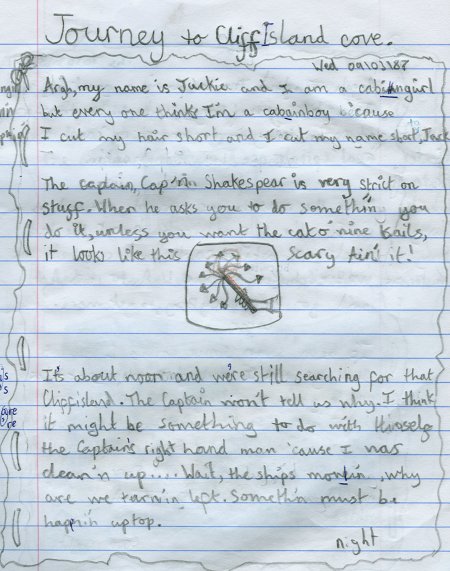 Journey to Cliff Island cove.
Wed 09101187
Argh, my name is Jackie and I am a cabingurl
but every one thinks I'm a cabainboy because
I cut my hair short and I cut my name short, Jack
The captain, Cap'n. Shakespear is very strict on
stuff. When he asks you to do somethin you
do it, unless you want the cat o nine tails,
it looks like this Scary Ain't it!
It's about noon and we're still searching for that
Cliff island. The Captain won't tell us why. I think
it might be something to do with
the Captain's right hand man 'cause I was
clean'n up.... Wait, the ships movin, why
are we turnin left. Somethin must be
happnin up top.
night